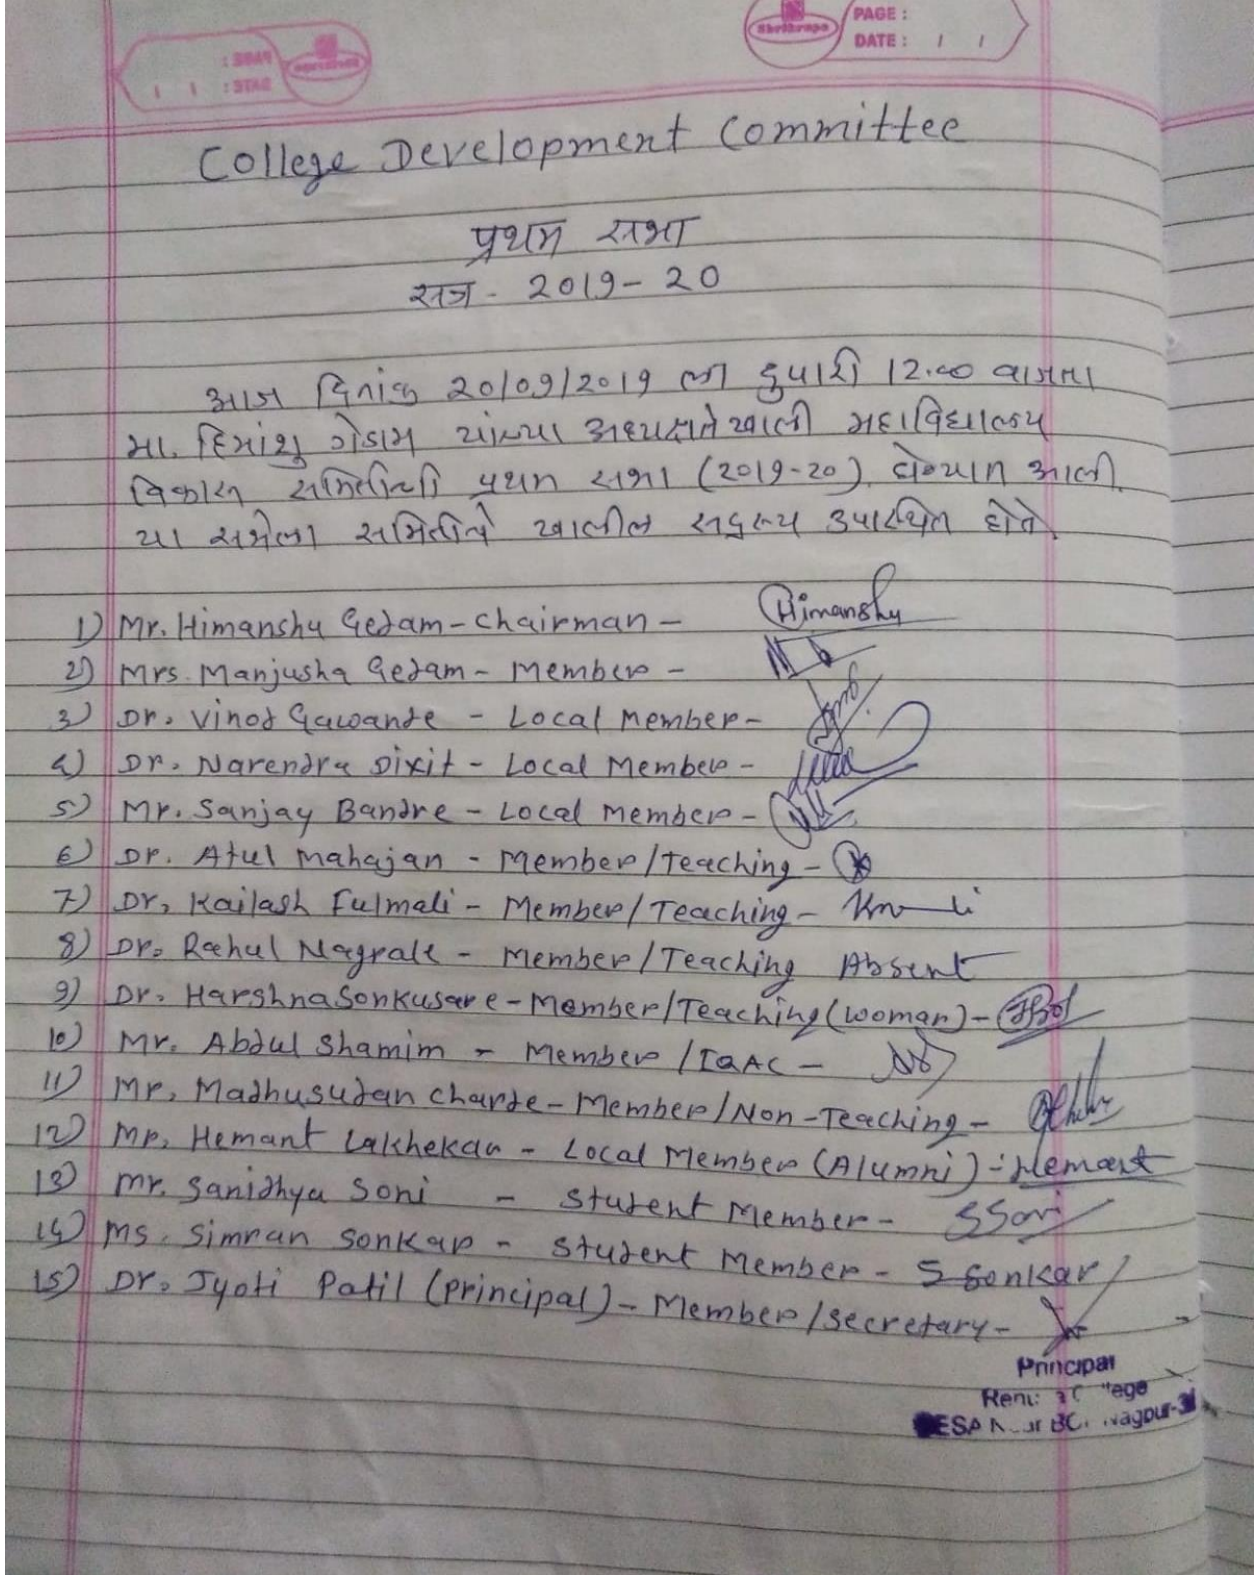 Shrikrupa
PAGE :
DATE : / /
College Development Committee
प्रथम सभा
सत्र - 2019-20
आज दिनांक 20/09/2019 ला दुपारी 12.00 वाजता
मा. हिमांशु गेडाम यांच्या अध्यक्षतेखाली महाविद्यालय
विकास समितीची प्रथम सभा (2019-20) घेण्यात आली.
या सभेला समितीचे खालील सदस्य उपस्थित होते.
1) Mr. Himanshu Gedam - Chairman - Himanshu
2) Mrs. Manjusha Gedam - Member -
3) Dr. Vinod Gawande - Local Member -
4) Dr. Narendra Dixit - Local Member -
5) Mr. Sanjay Bandre - Local Member -
6) Dr. Atul Mahajan - Member/Teaching -
7) Dr. Kailash Fulmali - Member/Teaching -
8) Dr. Rahul Nagrale - Member/Teaching Absent
9) Dr. Harshna Sonkusare - Member/Teaching (Woman) -
10) Mr. Abdul Shamim - Member/IQAC -
11) Mr. Madhusudan Charde - Member/Non-Teaching -
12) Mr. Hemant Lakhekar - Local Member (Alumni) - Hemant
13) Mr. Sanidhya Soni - Student Member - SSoni
14) Ms. Simran Sonkar - Student Member - S Sonkar
15) Dr. Jyoti Patil (Principal) - Member/Secretary -
Principal
Nagpur-